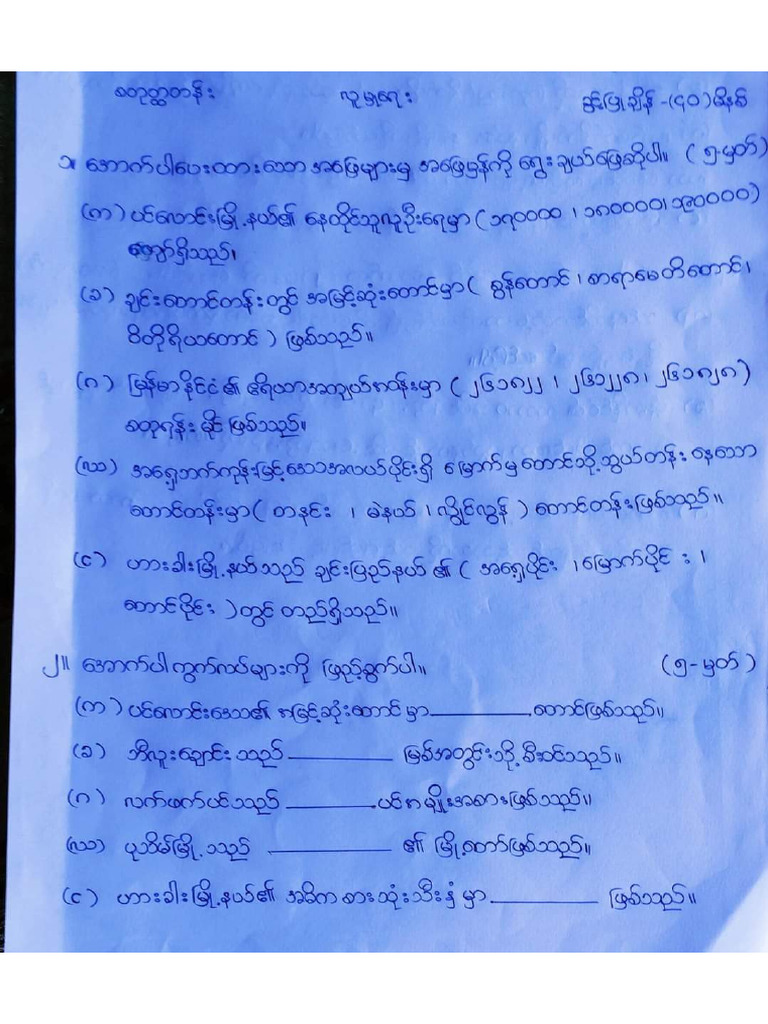 စတုတ္ထတန်း လူမှုရေး ခွင့်ပြုချိန် -(၄၀)မိနစ်
၁။ အောက်ပါပေးထားသော အဖြေများမှ အဖြေမှန်ကို ရွေးချယ်ဖြေဆိုပါ။ (၅-မှတ်)
(က) ပင်လောင်းမြို့နယ်၏ နေထိုင်သူလူဦးရေမှာ (၁၇၀၀၀၀ ၊ ၁၈၀၀၀၀၊ ၁၉၀၀၀၀)
ကျော်ရှိသည်၊
(ခ) ချင်းတောင်တန်းတွင် အမြင့်ဆုံးတောင်မှာ ( ခွန်တောင် ၊ စာရာမေတိတောင်၊
ဝိတိုရိယတောင် ) ဖြစ်သည်။
(ဂ) မြန်မာနိုင်ငံ၏ ဧရိယာအကျယ်အဝန်းမှာ (၂၆၁၈၂၂ ၊ ၂၆၁၂၂၈၊ ၂၆၁၈၂၈)
စတုရန်း မိုင် ဖြစ်သည်။
(ဃ) အရှေ့ဘက်ကုန်းမြင့်ဒေသအလယ်ပိုင်းရှိ မြောက်မှတောင်သို့သွယ်တန်း နေသော
တောင်တန်းမှာ ( တနင်း ၊ မဲနယ် ၊ လွိုင်လွန် ) တောင်တန်းဖြစ်သည်။
(င) ဟားခါးမြို့နယ်သည် ချင်းပြည်နယ် ၏ ( အရှေ့ပိုင်း ၊ မြောက်ပိုင်း ၊
တောင်ပိုင်း ) တွင် တည်ရှိသည်။
၂။ အောက်ပါ ကွက်လပ်များကို ဖြည့်စွက်ပါ။ (၅-မှတ်)
(က) ပင်လောင်းဒေသ၏ အမြင့်ဆုံးတောင် မှာ ________ တောင်ဖြစ်သည်။
(ခ) ဘီလူးချောင်း သည် ________ မြစ်အတွင်းသို့ စီးဝင်သည်။
(ဂ) လက်ဖက်ပင်သည် ________ ပင်အမျိုးအစားဖြစ်သည်။
(ဃ) ပုသိမ်မြို့သည် ________ ၏ မြို့တော်ဖြစ်သည်။
(င) ဟားခါးမြို့နယ်၏ အဓိက စားသုံးသီးနှံ မှာ ________ ဖြစ်သည်။